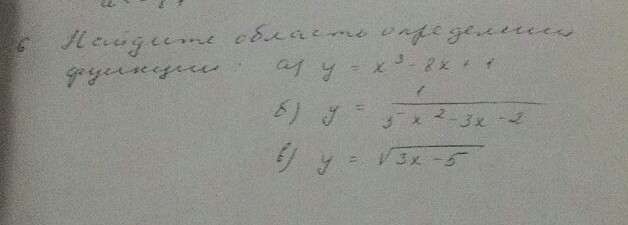 6 Найдите область определения
функции: а) y = x³ - 8x + 1
б) y = 1 / (5x² - 3x - 2)
в) y = √(3x - 5)